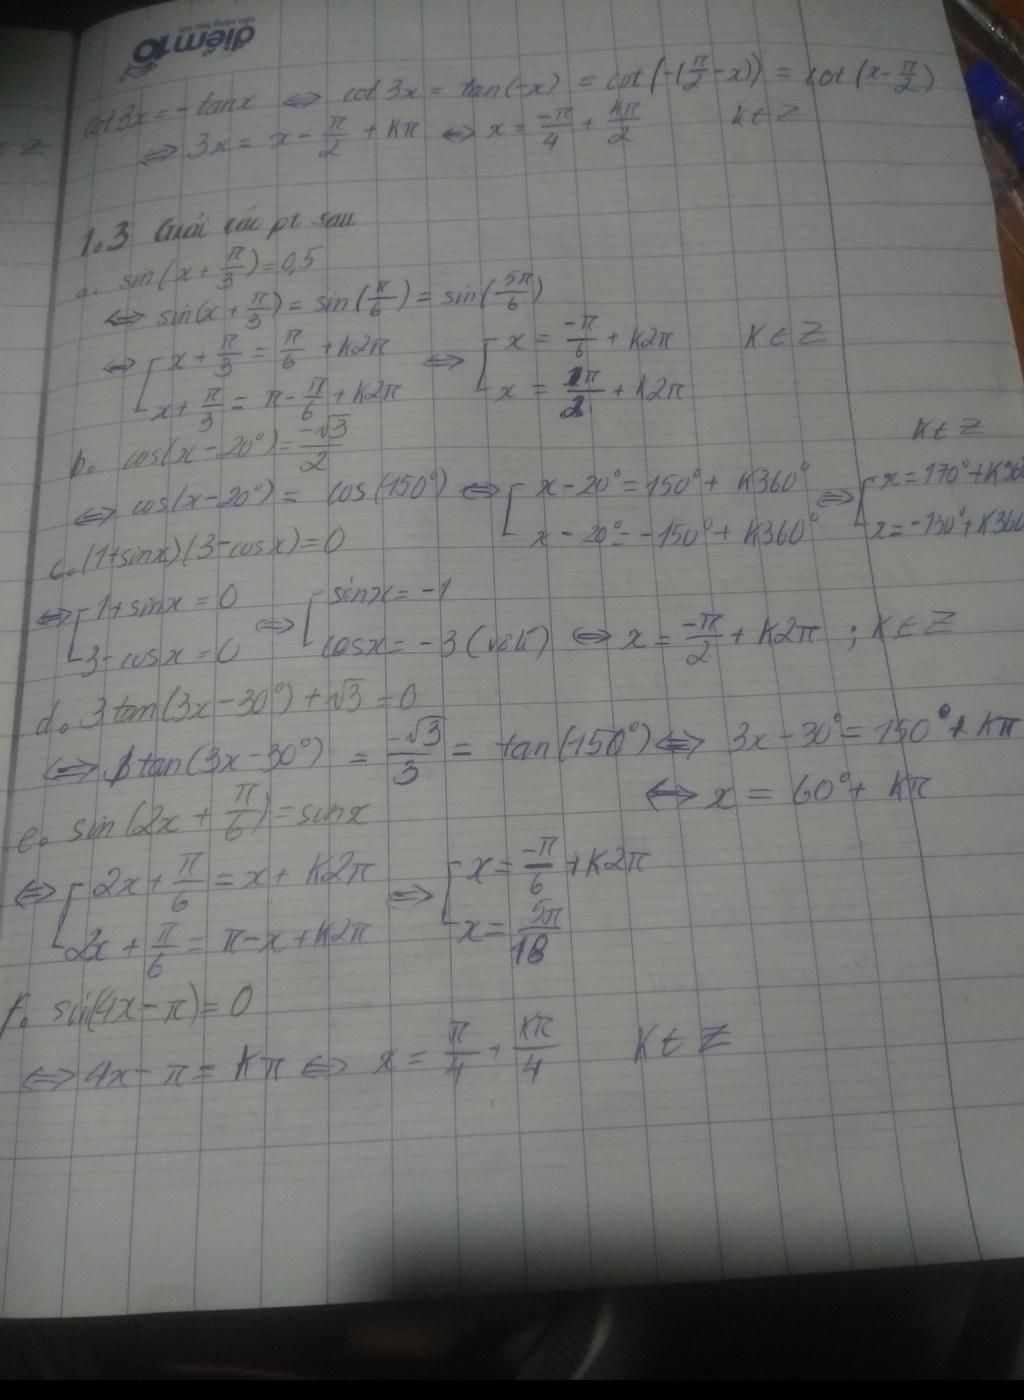 điểm10
cot 3x = -tanx ⇔ cot 3x = tan(-x) = cot(-(π/2 - x)) = cot(x - π/2)
⇔ 3x = x - π/2 + kπ ⇔ x = -π/4 + kπ/2 k ∈ Z
∈ Z
1.3 Giải các pt sau
a. sin(x + π/3) = 0,5
⇔ sin(x + π/3) = sin(π/6) = sin(5π/6)
⇔ [ x + π/3 = π/6 + k2π ⇔ [ x = -π/6 + k2π k ∈ Z
x + π/3 = π - π/6 + k2π x = π/2 + k2π
b. cos(x - 20°) = -√3/2 k ∈ Z
⇔ cos(x - 20°) = cos(150°) ⇔ [ x - 20° = 150° + k360° ⇔ [ x = 170° + k360
x - 20° = -150° + k360° x = -130° + k360
c. (1 + sinx)(3 - cosx) = 0
⇔ [ 1 + sinx = 0 ⇔ [ sinx = -1
3 - cosx = 0 cosx = -3 (vô lí) ⇔ x = -π/2 + k2π ; k ∈ Z
d. 3tan(3x - 30°) + √3 = 0
⇔ tan(3x - 30°) = -√3/3 = tan(150°) ⇔ 3x - 30° = 150° + kπ
⇔ x = 60° + kπ
e. sin(2x + π/6) = sinx
⇔ [ 2x + π/6 = x + k2π ⇔ [ x = -π/6 + k2π
2x + π/6 = π - x + k2π x = 5π/18
f. sin(4x - π) = 0
⇔ 4x - π = kπ ⇔ x = π/4 + kπ/4 k ∈ Z